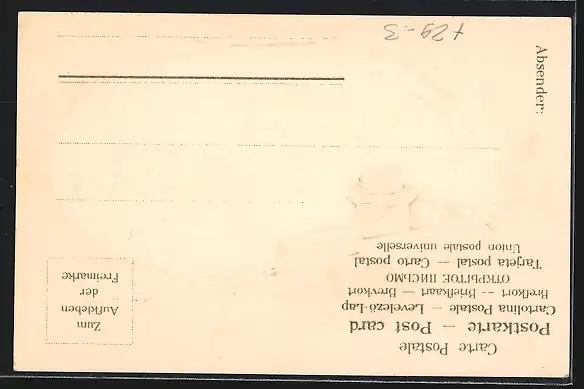 Carte Postale
Postkarte — Post card
Cartolina Postale — Levelező-Lap
Brefkort -- Briefkaart — Brevkort
ОТКРЫТОЕ ПИСЬМО
Tarjeta postal — Carto postal
Union postale universelle
Zum
Aufkleben
der
Freimarke
Absender:
+ 29-3